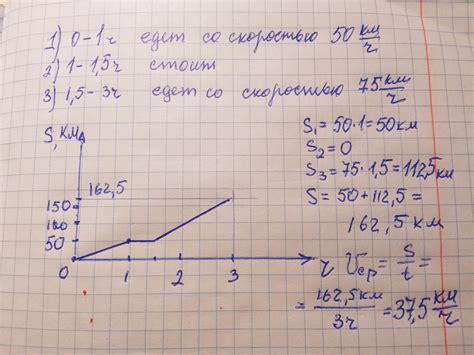 1) 0-1ч едет со скоростью 50 км/ч
2) 1-1,5ч стоит
3) 1,5-3ч едет со скоростью 75 км/ч
S, км
162,5
150
100
50
0 1 2 3 ч
S₁ = 50·1 = 50 км
S₂ = 0
S₃ = 75·1,5 = 112,5 км
S = 50 + 112,5 =
162,5 км
Vср = S/t =
= 162,5 км/3ч = 37,5 км/ч